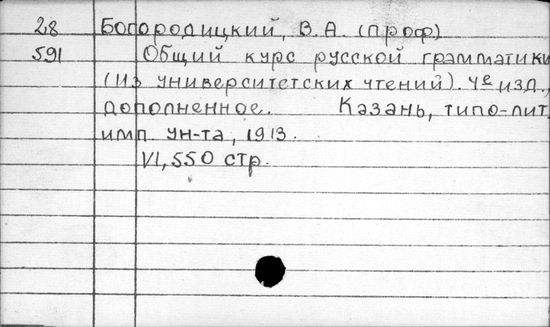 28 Богородицкий, В.А. (проф)
591 Общий курс русской грамматики
(из университетских чтений). 4е изд.,
дополненное. Казань, типо-лит.
имп. ун-та, 1913.
VI, 550 стр.